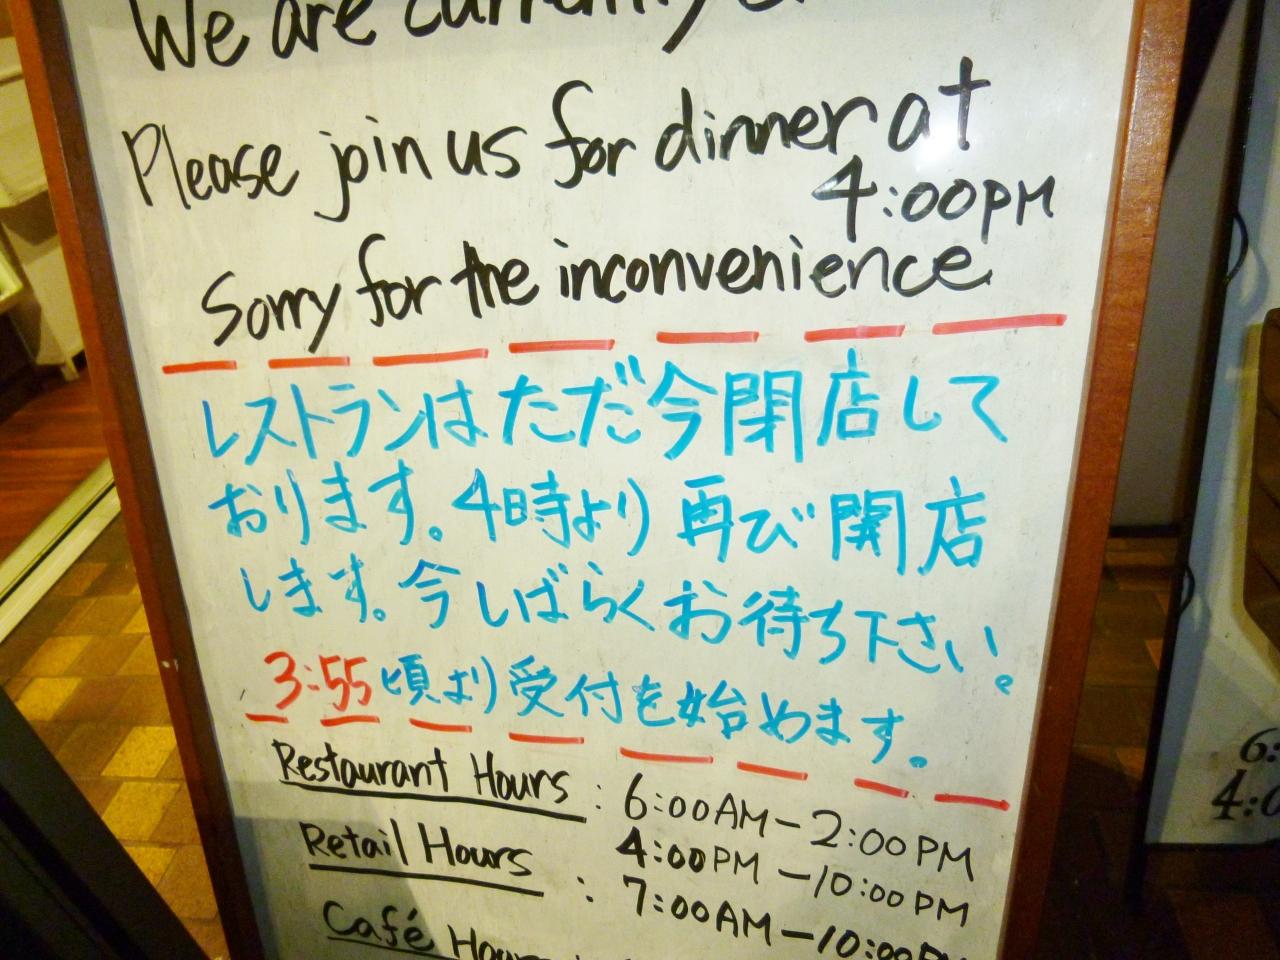 We are currently
Please join us for dinner at
4:00PM
Sorry for the inconvenience
レストランはただ今閉店して
おります。4時より再び開店
します。今しばらくお待ち下さい。
3:55頃より受付を始めます。
Restaurant Hours : 6:00AM-2:00PM
4:00PM-10:00PM
Retail Hours : 7:00AM-10:00PM
Café Hours
6:
4:0